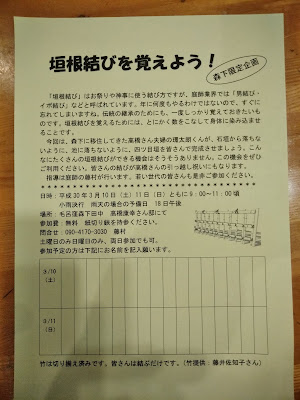 垣根結びを覚えよう!
森下限定企画
「垣根結び」はお祭りや神事に使う結び方ですが、庭師業界では「男結び・
イボ結び」などと呼ばれています。年に何度もやるわけではないので、すぐに
忘れてしまいますね。伝統の継承のためにも、一度しっかり覚えておきたいも
のです。垣根結びを覚えるためには、とにかく数をこなして身体に染み込ませ
ることです。
今回は、森下に移住してきた高橋さん夫婦の環太朗くんが、石垣から落ちな
いように、池に落ちないように、四つ目垣を皆さんで完成させましょう。こん
なにたくさんの垣根結びができる機会はそうそうありません。この機会をぜひ
ご利用ください。皆さんの結びが高橋さんの引っ越し祝いにもなります。
指導は庭師の藤村が行います。若い世代の皆さんも是非ご参加ください。
日時:平成30年3月10日(土)11日(日)ともに9:00~11:00頃
小雨決行 雨天の場合の予備日 18日午後
場所:毛呂窪森下田中 高橋康幸さん邸にて
参加費 無料 紙切り鋏を持参ください。
問合せ:090-4170-3030 藤村
土曜日のみ日曜日のみ、両日参加でも可。
参加予定の方は下記にお名前を記入願います。
3/10
(土)
3/11
(日)
竹は切り揃え済みです。皆さんは結ぶだけです。(竹提供:藤井佐知子さん)